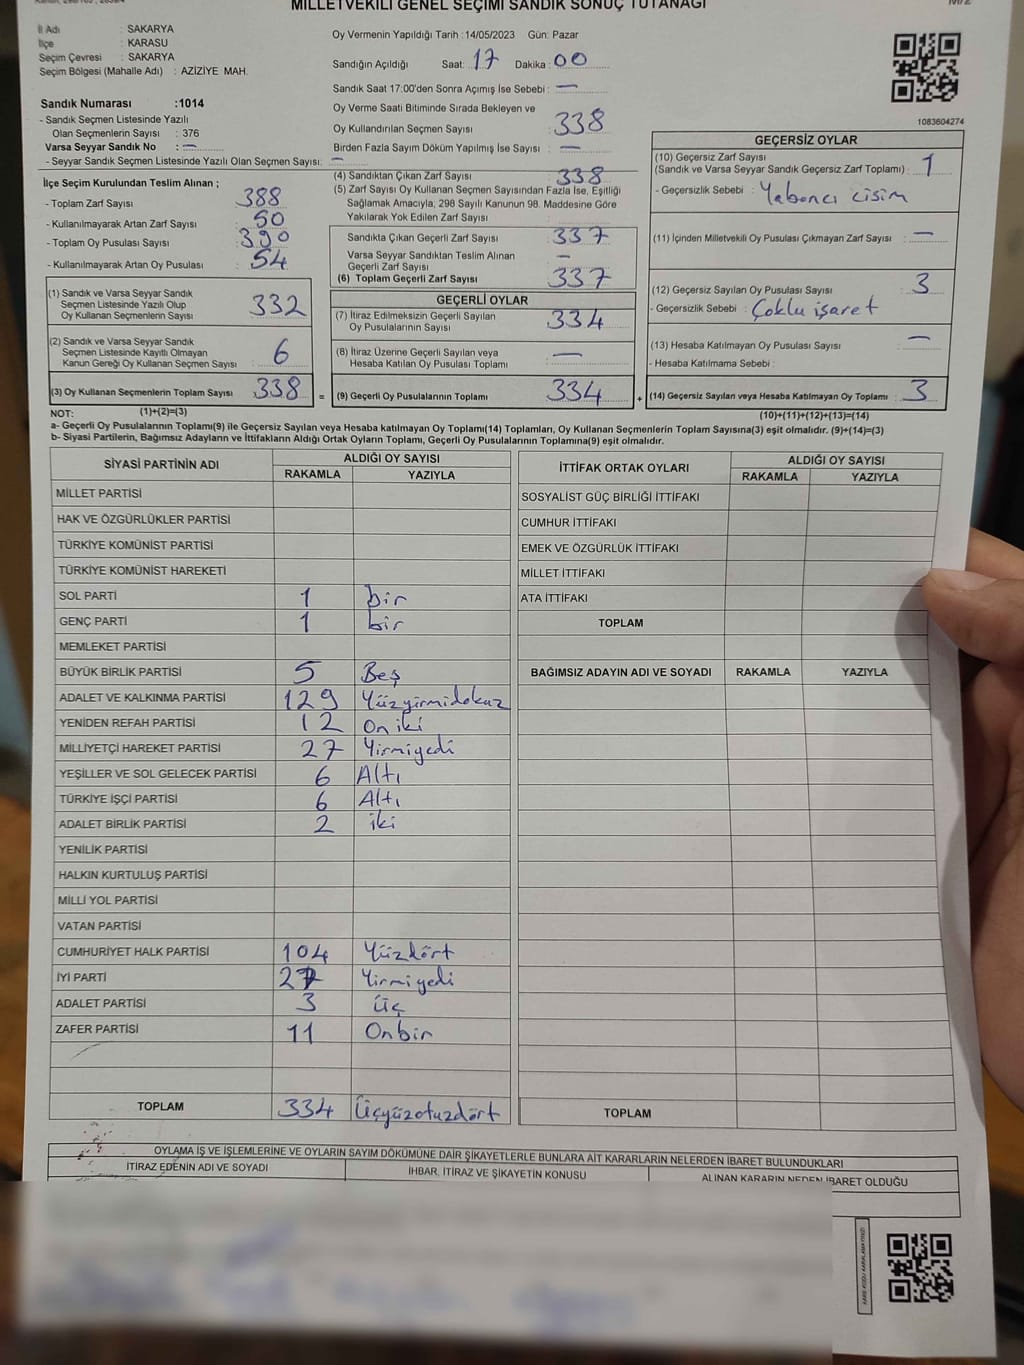 MİLLETVEKİLİ GENEL SEÇİMİ SANDIK SONUÇ TUTANAĞI
İl Adı : SAKARYA
İlçe : KARASU
Seçim Çevresi : SAKARYA
Seçim Bölgesi (Mahalle Adı) : AZİZİYE MAH.
Sandık Numarası :1014
- Sandık Seçmen Listesinde Yazılı
Olan Seçmenlerin Sayısı : 376
Varsa Seyyar Sandık No : —
- Seyyar Sandık Seçmen Listesinde Yazılı Olan Seçmen Sayısı: —
Oy Vermenin Yapıldığı Tarih :14/05/2023 Gün: Pazar
Sandığın Açıldığı Saat: 17 Dakika : 00
Sandık Saat 17:00'den Sonra Açımış İse Sebebi : —
Oy Verme Saati Bitiminde Sırada Bekleyen ve
Oy Kullandırılan Seçmen Sayısı : 338
Birden Fazla Sayım Döküm Yapılmış İse Sayısı : —
1083604274
İlçe Seçim Kurulundan Teslim Alınan ;
- Toplam Zarf Sayısı : 388
- Kullanılmayarak Artan Zarf Sayısı : 50
- Toplam Oy Pusulası Sayısı : 390
- Kullanılmayarak Artan Oy Pusulası : 54
(1) Sandık ve Varsa Seyyar Sandık
Seçmen Listesinde Yazılı Olup
Oy Kullanan Seçmenlerin Sayısı : 332
(2) Sandık ve Varsa Seyyar Sandık
Seçmen Listesinde Kayıtlı Olmayan
Kanun Gereği Oy Kullanan Seçmen Sayısı : 6
(3) Oy Kullanan Seçmenlerin Toplam Sayısı 338
(4) Sandıktan Çıkan Zarf Sayısı : 338
(5) Zarf Sayısı Oy Kullanan Seçmen Sayısından Fazla İse, Eşitliği
Sağlamak Amacıyla, 298 Sayılı Kanunun 98. Maddesine Göre
Yakılarak Yok Edilen Zarf Sayısı :
Sandıkta Çıkan Geçerli Zarf Sayısı : 337
Varsa Seyyar Sandıktan Teslim Alınan
Geçerli Zarf Sayısı : —
(6) Toplam Geçerli Zarf Sayısı : 337
GEÇERLİ OYLAR
(7) İtiraz Edilmeksizin Geçerli Sayılan
Oy Pusulalarının Sayısı : 334
(8) İtiraz Üzerine Geçerli Sayılan veya
Hesaba Katılan Oy Pusulası Toplamı : —
= (9) Geçerli Oy Pusulalarının Toplamı : 334
GEÇERSİZ OYLAR
(10) Geçersiz Zarf Sayısı
(Sandık ve Varsa Seyyar Sandık Geçersiz Zarf Toplamı) : 1
- Geçersizlik Sebebi : Yabancı cisim
(11) İçinden Milletvekili Oy Pusulası Çıkmayan Zarf Sayısı : —
(12) Geçersiz Sayılan Oy Pusulası Sayısı : 3
- Geçersizlik Sebebi : Çoklu işaret
(13) Hesaba Katılmayan Oy Pusulası Sayısı : —
- Hesaba Katılmama Sebebi :
+ (14) Geçersiz Sayılan veya Hesaba Katılmayan Oy Toplamı : 3
NOT: (1)+(2)=(3) (10)+(11)+(12)+(13)=(14)
a- Geçerli Oy Pusulalarının Toplamı(9) ile Geçersiz Sayılan veya Hesaba katılmayan Oy Toplamı(14) Toplamları, Oy Kullanan Seçmenlerin Toplam Sayısına(3) eşit olmalıdır. (9)+(14)=(3)
b- Siyasi Partilerin, Bağımsız Adayların ve İttifakların Aldığı Ortak Oyların Toplamı, Geçerli Oy Pusulalarının Toplamına(9) eşit olmalıdır.
SİYASİ PARTİNİN ADI ALDIĞI OY SAYISI
RAKAMLA YAZIYLA
MİLLET PARTİSİ
HAK VE ÖZGÜRLÜKLER PARTİSİ
TÜRKİYE KOMÜNİST PARTİSİ
TÜRKİYE KOMÜNİST HAREKETİ
SOL PARTİ 1 bir
GENÇ PARTİ 1 bir
MEMLEKET PARTİSİ
BÜYÜK BİRLİK PARTİSİ 5 Beş
ADALET VE KALKINMA PARTİSİ 129 Yüzyirmidokuz
YENİDEN REFAH PARTİSİ 12 On iki
MİLLİYETÇİ HAREKET PARTİSİ 27 Yirmiyedi
YEŞİLLER VE SOL GELECEK PARTİSİ 6 Altı
TÜRKİYE İŞÇİ PARTİSİ 6 Altı
ADALET BİRLİK PARTİSİ 2 iki
YENİLİK PARTİSİ
HALKIN KURTULUŞ PARTİSİ
MİLLİ YOL PARTİSİ
VATAN PARTİSİ
CUMHURİYET HALK PARTİSİ 104 Yüzdört
İYİ PARTİ 27 Yirmiyedi
ADALET PARTİSİ 3 Üç
ZAFER PARTİSİ 11 Onbir
TOPLAM 334 Üçyüzotuzdört
İTTİFAK ORTAK OYLARI ALDIĞI OY SAYISI
RAKAMLA YAZIYLA
SOSYALİST GÜÇ BİRLİĞİ İTTİFAKI
CUMHUR İTTİFAKI
EMEK VE ÖZGÜRLÜK İTTİFAKI
MİLLET İTTİFAKI
ATA İTTİFAKI
TOPLAM
BAĞIMSIZ ADAYIN ADI VE SOYADI RAKAMLA YAZIYLA
TOPLAM
OYLAMA İŞ VE İŞLEMLERİNE VE OYLARIN SAYIM DÖKÜMÜNE DAİR ŞİKAYETLERLE BUNLARA AİT KARARLARIN NELERDEN İBARET BULUNDUKLARI
İTİRAZ EDENİN ADI VE SOYADI İHBAR, İTİRAZ VE ŞİKAYETİN KONUSU ALINAN KARARIN NEDEN İBARET OLDUĞU